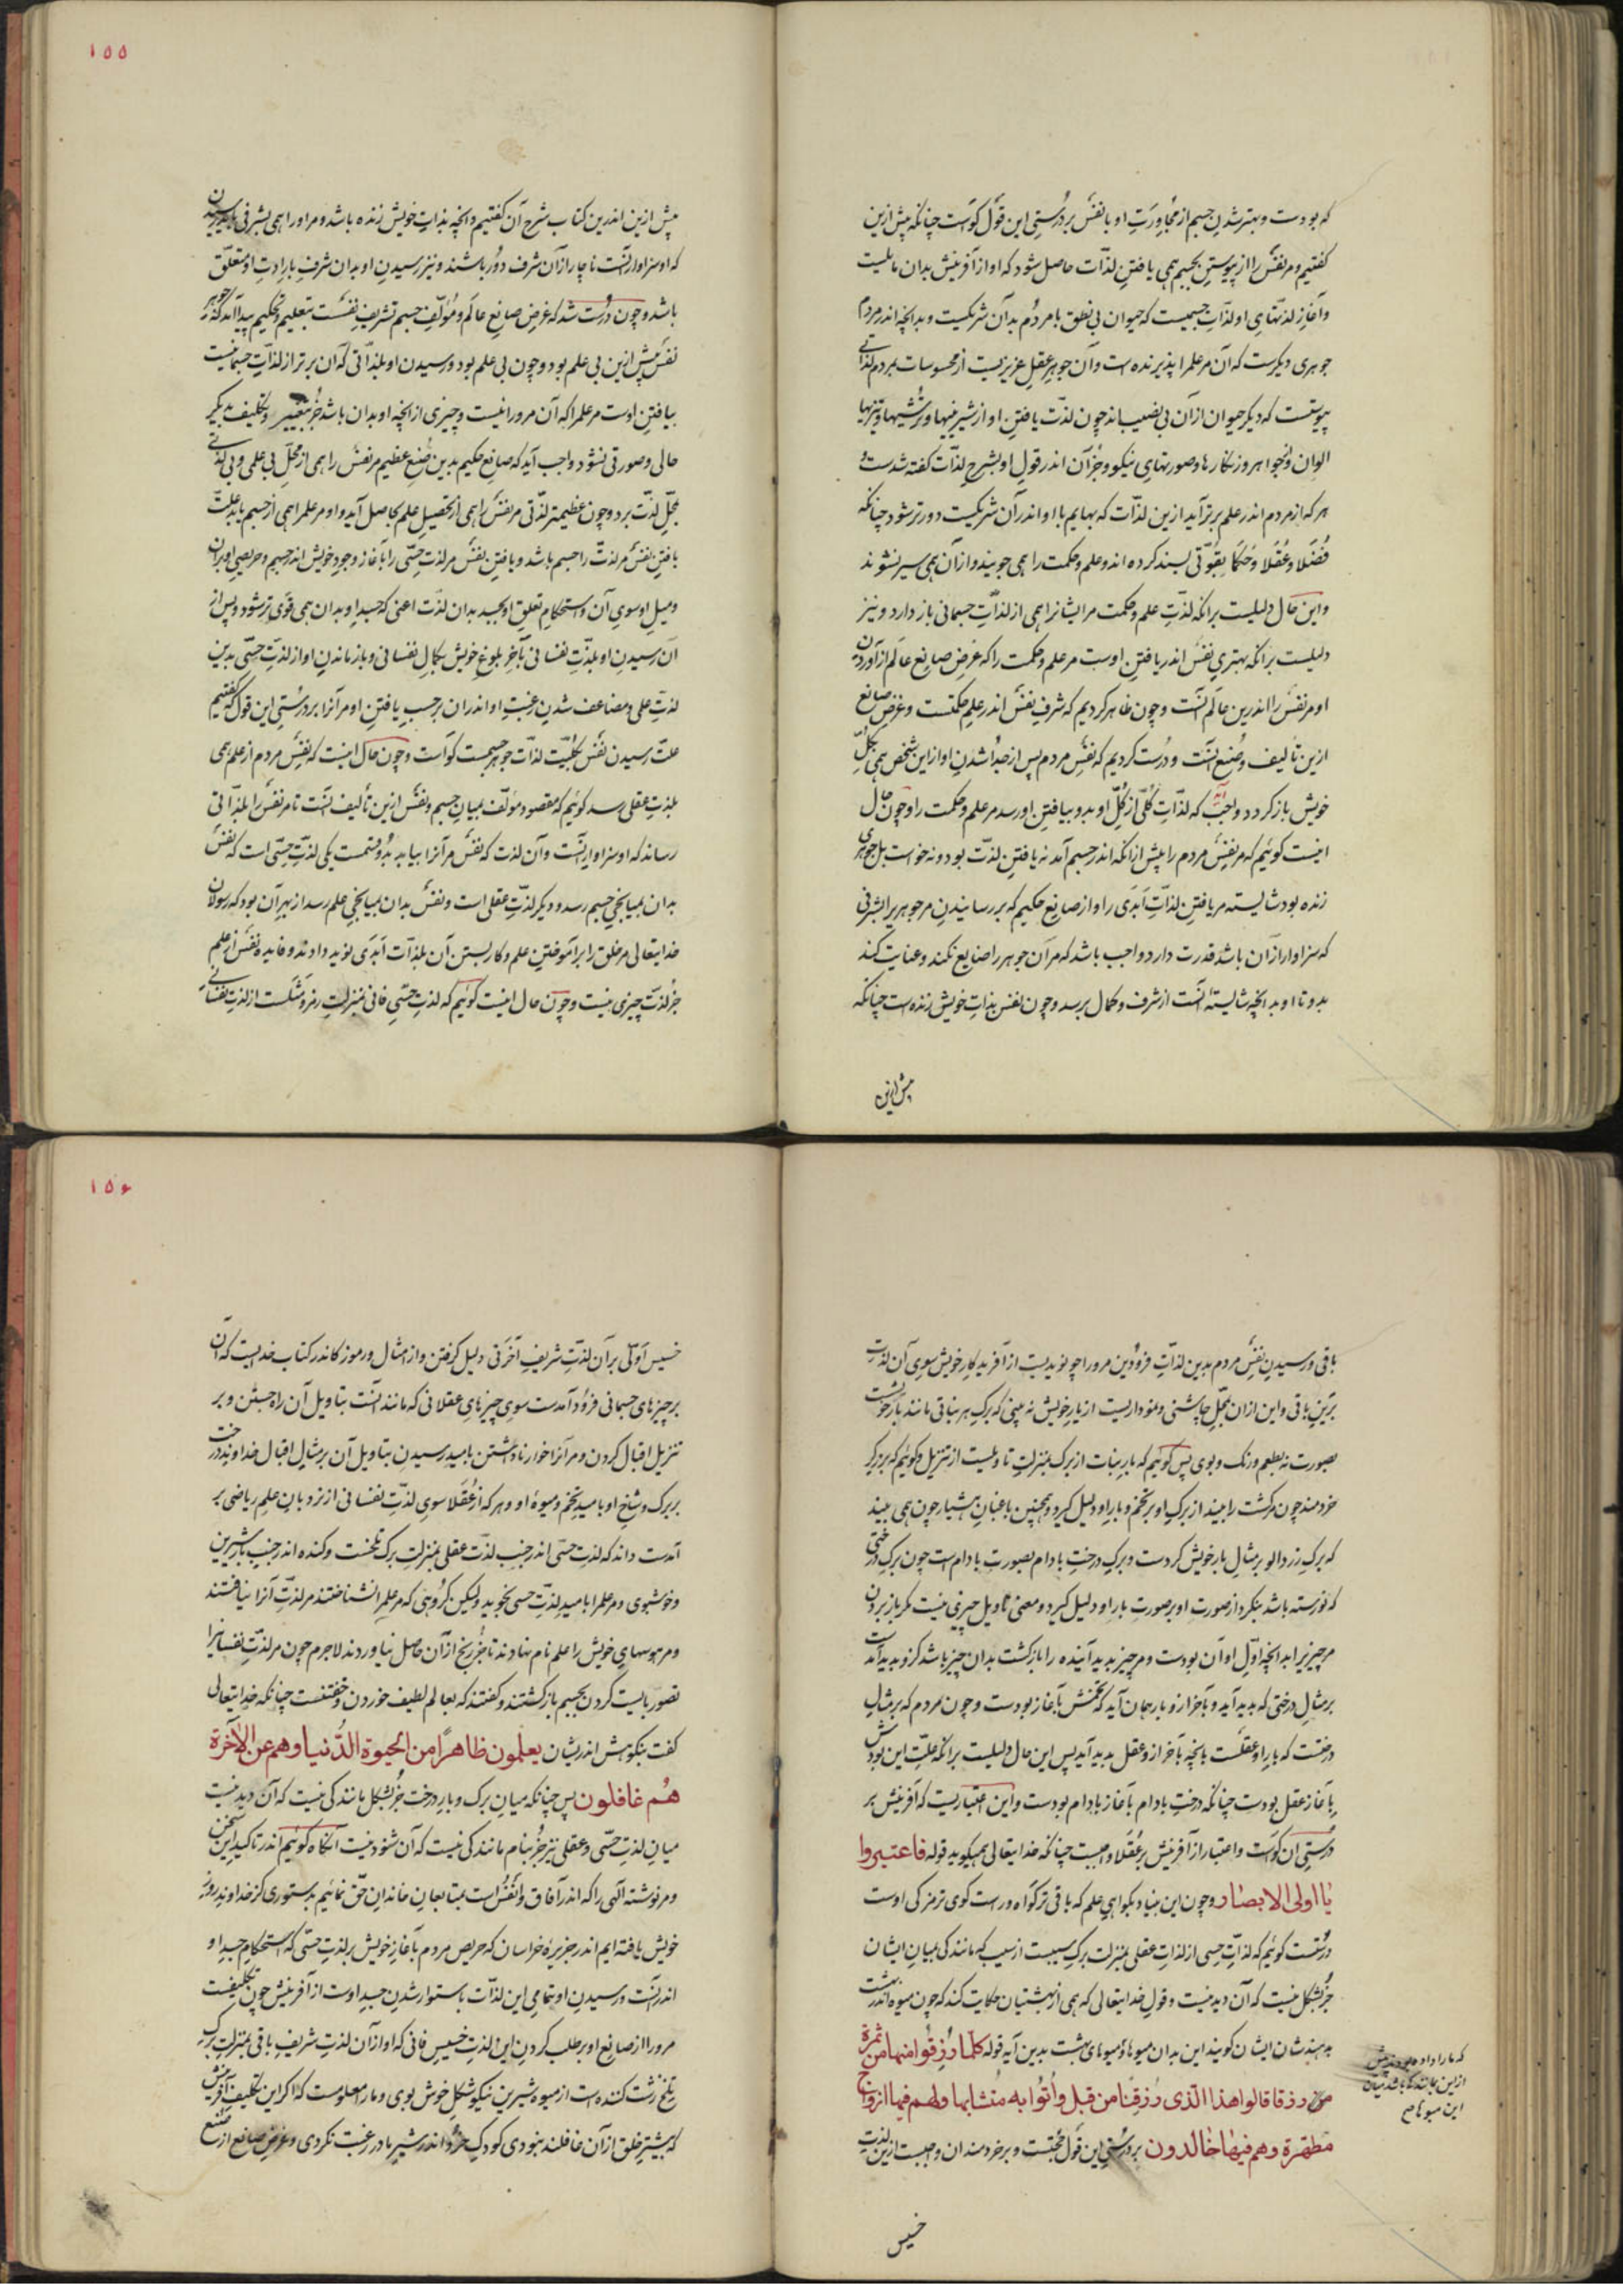 که بودست و بهتر شدن جسم از مجاورت او با نفس بر درستی این قول گواست چنانکه پیش ازین
گفتیم و مر نفس را از پیوستن بجسم همی یافتن لذات حاصل شود که او از آفرینش بدان مایلست
و آغاز لذتهای او لذات جسمیست که حیوان بی نطق با مردم بدان شریکست و بدانچه اندر مردم
جوهری دیگرست که آن مر علم را پذیرنده است و آن جوهر عقل عزیزیست از محسوسات بمردم لذاتی
پیوستست که دیگر حیوان ازان بی نصیب اند چون لذت یافتن او از شیرینیها و ترشیها و تیزیها
الوان و از جواهر و زنگارها و صورتهای نیکو و جز آن اندر قول او بشرح لذات گفته شدست و
هر که از مردم اندر علم برتر آید ازین لذات که بهایم با او اندر آن شریکست دورتر شود چنانکه
فضلا و عقلا و حکما بقوتی بسند کرده اند و علم و حکمت را همی جویند و ازان همی سیر نشوند
و این حال دلیلست برانکه لذت علم و حکمت مر ایشانرا همی از لذات جسمانی باز دارد و نیز
دلیلست برانکه بهتری نفس اندر یافتن اوست مر علم و حکمت را که غرض صانع عالم از آوردن
او مر نفس را اندرین عالم آنست و چون ظاهر کردیم که شرف نفس اندر علم حکمتست و غرض صانع
ازین تألیف و صنع آنست و درست کردیم که نفس مردم پس از جدا شدن او ازین شخص همی بکل
خویش باز گردد واجب آید که لذات کلی از کل او بدو و بیافتن او رسد مر علم و حکمت را و چون حال
اینست گوئیم که مر نفس مردم را پیش ازانکه اندر جسم آمد نه یافتن لذت بود و نه خواست بل جوهری
زنده بود شایسته مر یافتن لذات ابدی را و از صانع حکیم که بر رسانیدن مر جوهری را بشرفی
که سزاوار آن باشد قدرت دارد واجب باشد که مر آن جوهر را ضایع نکند و عنایت کند
بدو تا او بدانچه شایسته آنست از شرف و کمال برسد و چون نفس بذات خویش زنده است چنانکه
پیش ازین
۱۵۵
پیش ازین اندرین کتاب شرح آن گفتیم و آنچه بذات خویش زنده باشد و مر او را همی بشرفی باید رسیدن
که او سزاوار آنست ناچار ازان شرف دور باشند و نیز رسیدن او بدان شرف بارادت او متعلق
باشد و چون درست شد که غرض صانع عالم و مؤلف جسم تشریف نفس است بتعلیم و تحکیم پیدا آمد که جوهر
نفس پیش ازین بی علم بود و چون بی علم بود و رسیدن او بلذاتی که آن برتر از لذات جسمانیست
بیافتن اوست مر علم را که آن مرو را نیست و چیزی از آنچه او بدان باشد جز بتغییر و تکلیف بدیگر
حالی و صورتی نشود واجب آید که صانع حکیم بدین صنع عظیم مر نفس را همی از محل بی علمی و بی لذتی
بمحل لذت برد و چون عظیمتر لذتی مر نفس را همی از تحصیل علم حاصل آید و او مر علم را همی از جسم یابد علت
یافتن نفس مر لذت را جسم باشد و یافتن نفس مر لذت حسی را بآغاز وجود خویش اندر جسم و حریصی او بران
و میل او سوی آن و استحکام تعلق او بجسد بدان لذت اعنی که جسد او بدان همی قوی تر شود و پس از
آن رسیدن او بلذت نفسانی بآخر بلوغ خویش بکمال نفسانی و باز ماندن او از لذت حسی بدین
لذت علمی و مضاعف شدن رغبت او اندران بر حسب یافتن او مر آنرا بر درستی این قول که گفتیم
علت رسیدن نفس بکلیت لذات جوهر جسمست گواست و چون حال اینست که نفس مردم از علم همی
بلذت عقلی رسد گوئیم که مقصود مؤلف میان جسم و نفس ازین تألیف آنست تا مر نفس را بلذاتی
رساند که او سزاوار آنست و آن لذت که نفس مر آنرا بیابد بدو قسمست یکی لذت حسی است که نفس
بدان بمیانجی جسم رسد و دیگر لذت عقلی است و نفس بدان بمیانجی علم رسد از بهر آن بود که رسولان
خدایتعالی مر خلق را بر آموختن علم و کار بستن آن بلذات ابدی نوید دادند و فایده نفس از علم
جز لذت چیزی نیست و چون حال اینست گوئیم که لذت حسی فانی بمنزلت رمز و مثلست از لذت نفسانی
باقی و رسیدن نفس مردم بدین لذات فرودین مرورا چو نویدیست از آفریدگار خویش سوی آن لذت
برین باقی و این ازان بمحل چاشنی و نموداریست از یار خویش نه بینی که برگ هر نباتی مانند بار خویشست
بصورت نه بطعم و رنگ و بوی پس گوئیم که بار نبات از برگ بمنزلت تاویلست از تنزیل و گوئیم که برزیگر
خردمند چون مر کشت را بیند از برگ او بر تخم و بار او دلیل گیرد و همچنین باغبان هشیار چون همی بیند
که برگ زردالو بر مثال بار خویش گردست و برگ درخت بادام بصورت بادام است چون برگ درختی
که نو رسته باشد بنگرد از صورت او بر صورت بار او دلیل گیرد و معنی تاویل چیزی نیست مگر باز بردن
مر چیز را بدانچه اول او آن بودست و مر چیز پدید آینده را بازگشت بدان چیز باشد کزو پدید آمدست
بر مثال درختی که پدید آید و بآخر ازو بار همان آید که تخمش بآغاز بودست و چون مردم که بر مثال
درختست که بار او عقلست بآنچه بآخر ازو عقل پدید آید پس این حال دلیلست برانکه علت این بودش
بآغاز عقل بودست چنانکه درخت بادام بآغاز بادام بودست و این اعتباریست که آفرینش بر
درستی آن گواست و اعتبار از آفرینش بر عقلا واجبست چنانکه خدایتعالی همیگوید قوله فاعتبروا
یا اولی الابصار و چون این بنیاد بگواهی علم که باقی تر گواه و راست گوی تر مزکی اوست
درستست گوئیم که لذات حسی از لذات عقلی بمنزلت برگ سیبست از سیب که مانندگی میان ایشان
جز بشکل نیست که آن دیدنیست و قول خدایتعالی که همی از بهشتیان حکایت کند که چون میوه اندر بهشت
بدهندشان ایشان گویند این بدان میوها و میوهای بهشت بدین آیه قوله کلما رزقوا منها من ثمرة
من رزقا قالوا هذا الذی رزقنا من قبل و اتوا به متشابها و لهم فیها ازواج
مطهرة وهم فیها خالدون بر درستی این قول حجتست و بر خردمندان واجبست ازین لذت
که ما را داده بودند پیش
ازین مانندگی باشد میان
این میوها صح
خسیس
۱۵۶
خسیس اولی بر آن لذت شریف آخرتی دلیل گرفتن و از امثال و رموز کاندر کتاب خدایست که آن
بر چیزهای جسمانی فرود آمدست سوی چیزهای عقلانی که مانند آنست بتاویل آن راه جستن و بر
تنزیل اقبال کردن و مر آنرا خوار ناداشتن بامید رسیدن بتاویل آن بر مثال اقبال خداوند درخت
بر برگ و شاخ او بامید تخم و میوه او و هر که از عقلا سوی لذت نفسانی از نردبان علم ریاضی بر
آمدست داند که لذت حسی اندر جنب لذت عقلی بمنزلت برگ تلخست و گنده اندر جنب بار شیرین
و خوشبوی و مر علم را بامید لذت حسی نجوید ولیکن گروهی که مر علم را نشناختند مر لذت آنرا نیافتند
و مر هوسهای خویش را علم نام نهادند تا جز رنج ازان حاصل نیاوردند لاجرم چون مر لذت نفسانیرا
تصور بایست کردن بجسم باز گشتند و گفتند که بعالم لطیف خوردن و خفتنست چنانکه خدایتعالی
گفت بنکوهش اندریشان یعلمون ظاهرا من الحیوة الدنیا وهم عن الآخرة
هم غافلون پس چنانکه میان برگ و بار درخت جز بشکل مانندگی نیست که آن دیدنیست
میان لذت حسی و عقلی نیز جز بنام مانندگی نیست که آن شنودنیست آنگاه گوئیم اندر تاکید این سخن
و مر نوشته الهی را که اندر آفاق و انفس است بمتابعان خاندان حق نمائیم بدستوری کز خداوند روزگار
خویش یافته ایم اندر جزیره خراسان که حریص مردم بآغاز خویش بر لذت حسی که استحکام جسد او
اندر آنست و رسیدن او بتمامی این لذات باستوار شدن جسد اوست از آفرینش چون تکلیفست
مرورا از صانع او بر طلب کردن این لذت خسیس فانی که او ازان لذت شریف باقی بمنزلت برگ
تلخ زشت گنده است از میوه شیرین نیکو شکل خوش بوی و مارا معلومست که اگر این تکلیف آفرینش
که بیشتر خلق ازان غافلند نبودی کودک خرد اندر شیر مادر رغبت نکردی و غرض صانع از صنع